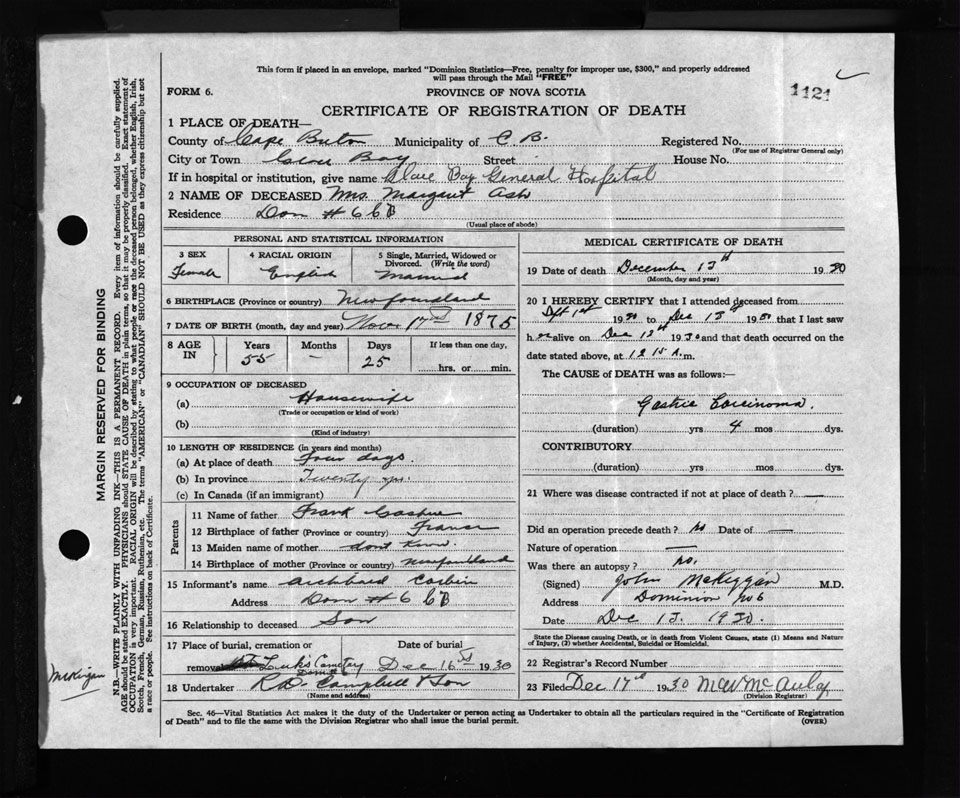 This form if placed in an envelope, marked "Dominion Statistics—Free, penalty for improper use, $300," and properly addressed
will pass through the Mail "FREE"
FORM 6.
PROVINCE OF NOVA SCOTIA
1121
CERTIFICATE OF REGISTRATION OF DEATH
1 PLACE OF DEATH—
County of Cape Breton Municipality of C B. Registered No.
(For use of Registrar General only)
City or Town Glace Bay Street House No.
If in hospital or institution, give name Glace Bay General Hospital
2 NAME OF DECEASED Mrs. Margaret Ash
Residence Dom # 6 C B
(Usual place of abode)
PERSONAL AND STATISTICAL INFORMATION
3 SEX 4 RACIAL ORIGIN 5 Single, Married, Widowed or
Divorced. (Write the word)
Female English Married
6 BIRTHPLACE (Province or country) Newfoundland
7 DATE OF BIRTH (month, day and year) Nov. 17th 1875
8 AGE IN Years Months Days If less than one day,
55 — 25 hrs. or min.
9 OCCUPATION OF DECEASED
(a) Housewife
(Trade or occupation or kind of work)
(b)
(Kind of industry)
10 LENGTH OF RESIDENCE (in years and months)
(a) At place of death Four days.
(b) In province Twenty yrs.
(c) In Canada (if an immigrant)
Parents
11 Name of father Frank
12 Birthplace of father (Province or country) France
13 Maiden name of mother dont Know
14 Birthplace of mother (Province or country) Newfoundland
15 Informant's name Archibald Corbin
Address Dom # 6 C B
16 Relationship to deceased Son
17 Place of burial, cremation or Date of burial
removal Luk's Cemetery Dec 16th 1930
18 Undertaker Campbell & Son
(Name and address)
MEDICAL CERTIFICATE OF DEATH
19 Date of death December 13th 1930
(Month, day and year)
20 I HEREBY CERTIFY that I attended deceased from
1st 1930 to Dec 13th 1930 that I last saw
h er alive on Dec 13th 1930 and that death occurred on the
date stated above, at 12 15 A. m.
The CAUSE of DEATH was as follows:—
Gastric Carcinoma.
(duration) yrs 4 mos dys.
CONTRIBUTORY
(duration) yrs mos dys.
21 Where was disease contracted if not at place of death? —
Did an operation precede death? No Date of —
Nature of operation —
Was there an autopsy? No.
(Signed) John McKeggan M.D.
Address Dominion No 6
Date Dec 13. 1930.
State the Disease causing Death, or in death from Violent Causes, state (1) Means and Nature
of Injury, (2) whether Accidental, Suicidal or Homicidal.
22 Registrar's Record Number
23 Filed Dec 17th 1930
(Division Registrar)
Sec. 46—Vital Statistics Act makes it the duty of the Undertaker or person acting as Undertaker to obtain all the particulars required in the "Certificate of Registration
of Death" and to file the same with the Division Registrar who shall issue the burial permit. (OVER)
MARGIN RESERVED FOR BINDING
N.B.—WRITE PLAINLY WITH UNFADING INK—THIS IS A PERMANENT RECORD. Every item of information should be carefully supplied.
AGE should be stated EXACTLY. PHYSICIANS should STATE CAUSE OF DEATH in plain terms, so that it may be properly classified. Exact statement of
OCCUPATION is very important. RACIAL ORIGIN will be described by stating to what people or race the deceased person belonged, whether English, Irish,
Scotch, French, German, Russian, Ruthenian, etc. The terms "AMERICAN" or "CANADIAN" SHOULD NOT BE USED as they express citizenship but not
a race or people. See instructions on back of Certificate.